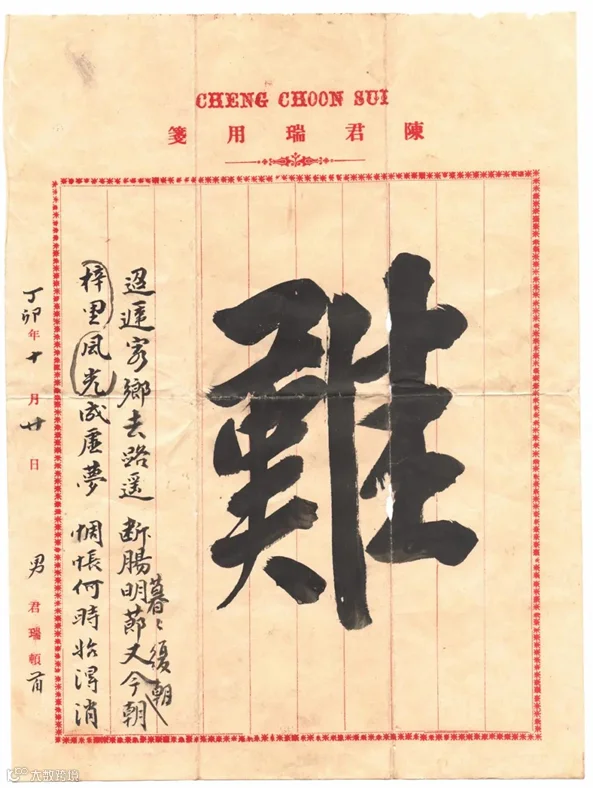 CHENG CHOON SUI
陳君瑞用箋
難
迢遞家鄉去路遥 断腸明節又今朝
暮〻復朝
梓里風光成虛夢 惆悵何時始得消
丁卯年十月廿日 男君瑞頓首
大数跨境